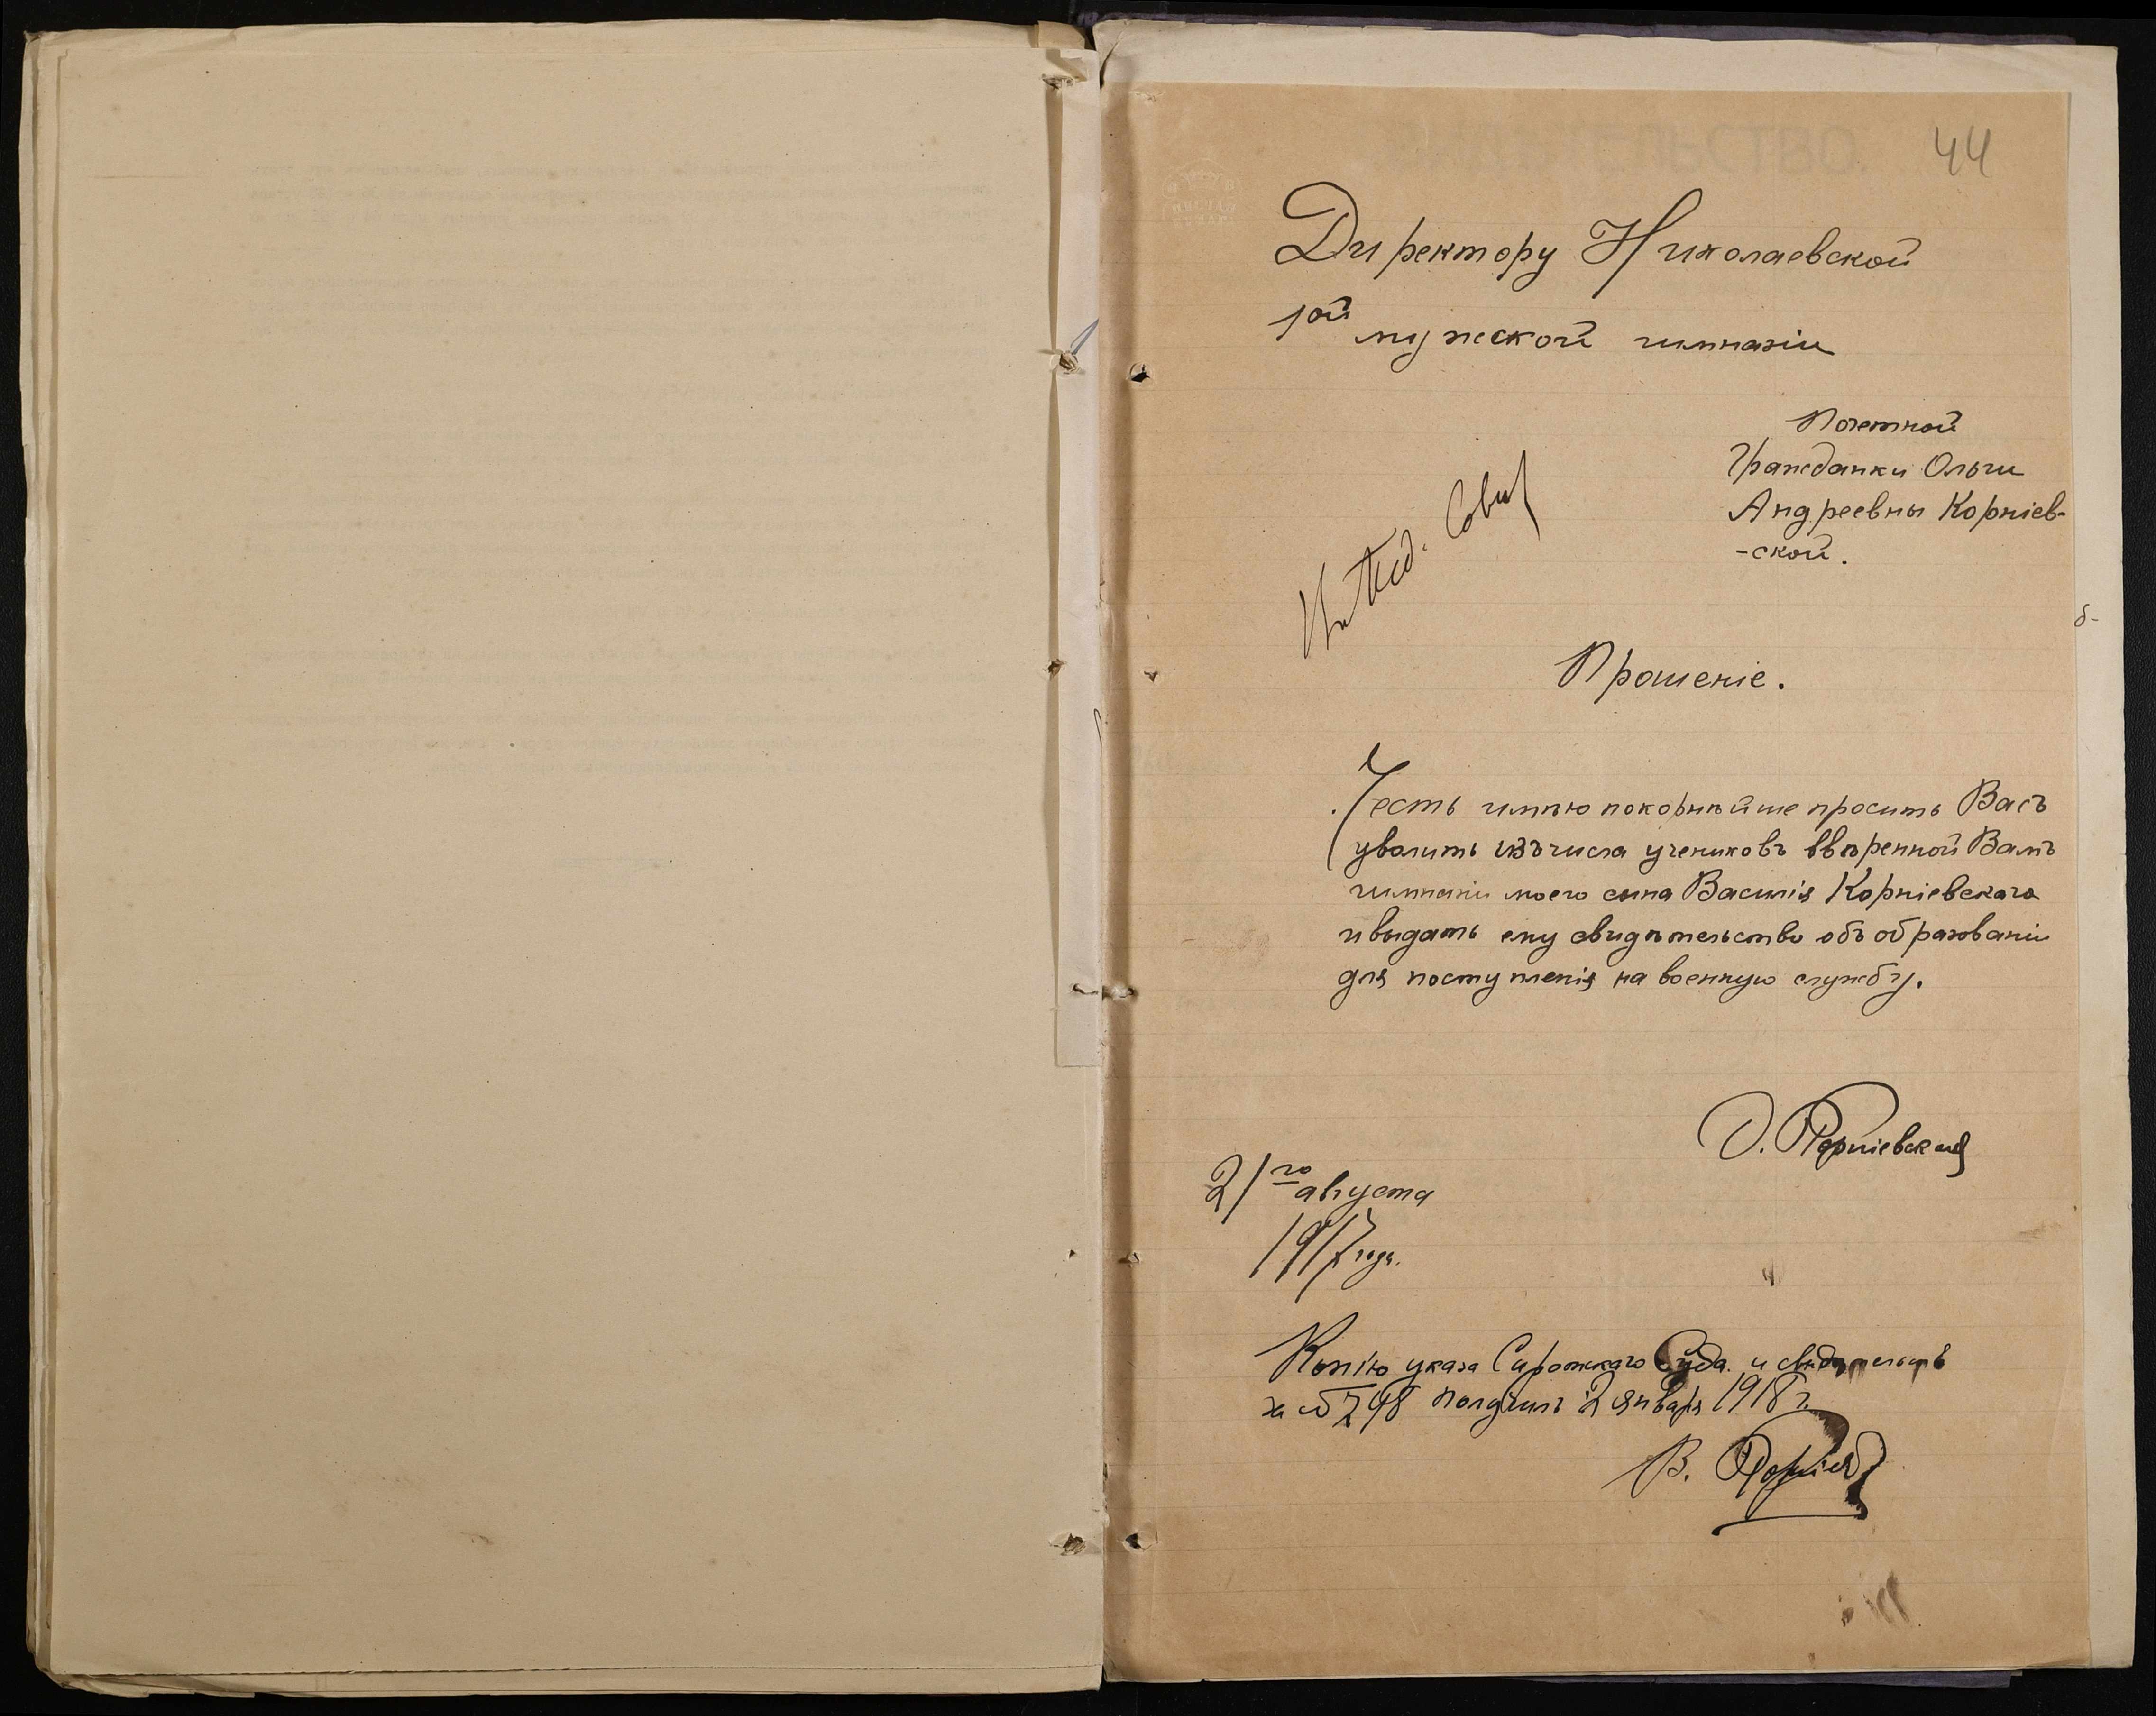 44
Директору Николаевской
1ой мужеской гимназіи
Почетной
Гражданки Ольги
Андреевны Корніев-
-ской.
Пед. Совѣт
Прошеніе.
Честь имѣю покорнѣйше просить Васъ
уволить изъ числа учениковъ ввѣренной Вамъ
гимназіи моего сына Василія Корніевскаго
и выдать ему свидѣтельство объ образованіи
для поступленія на военную службу.
О. Корніевская
21го августа
1917 года.
Копію указа Сиротскаго Суда и свидѣтельство
за № 798 получилъ 2 января 1918 г.
В. Корніев